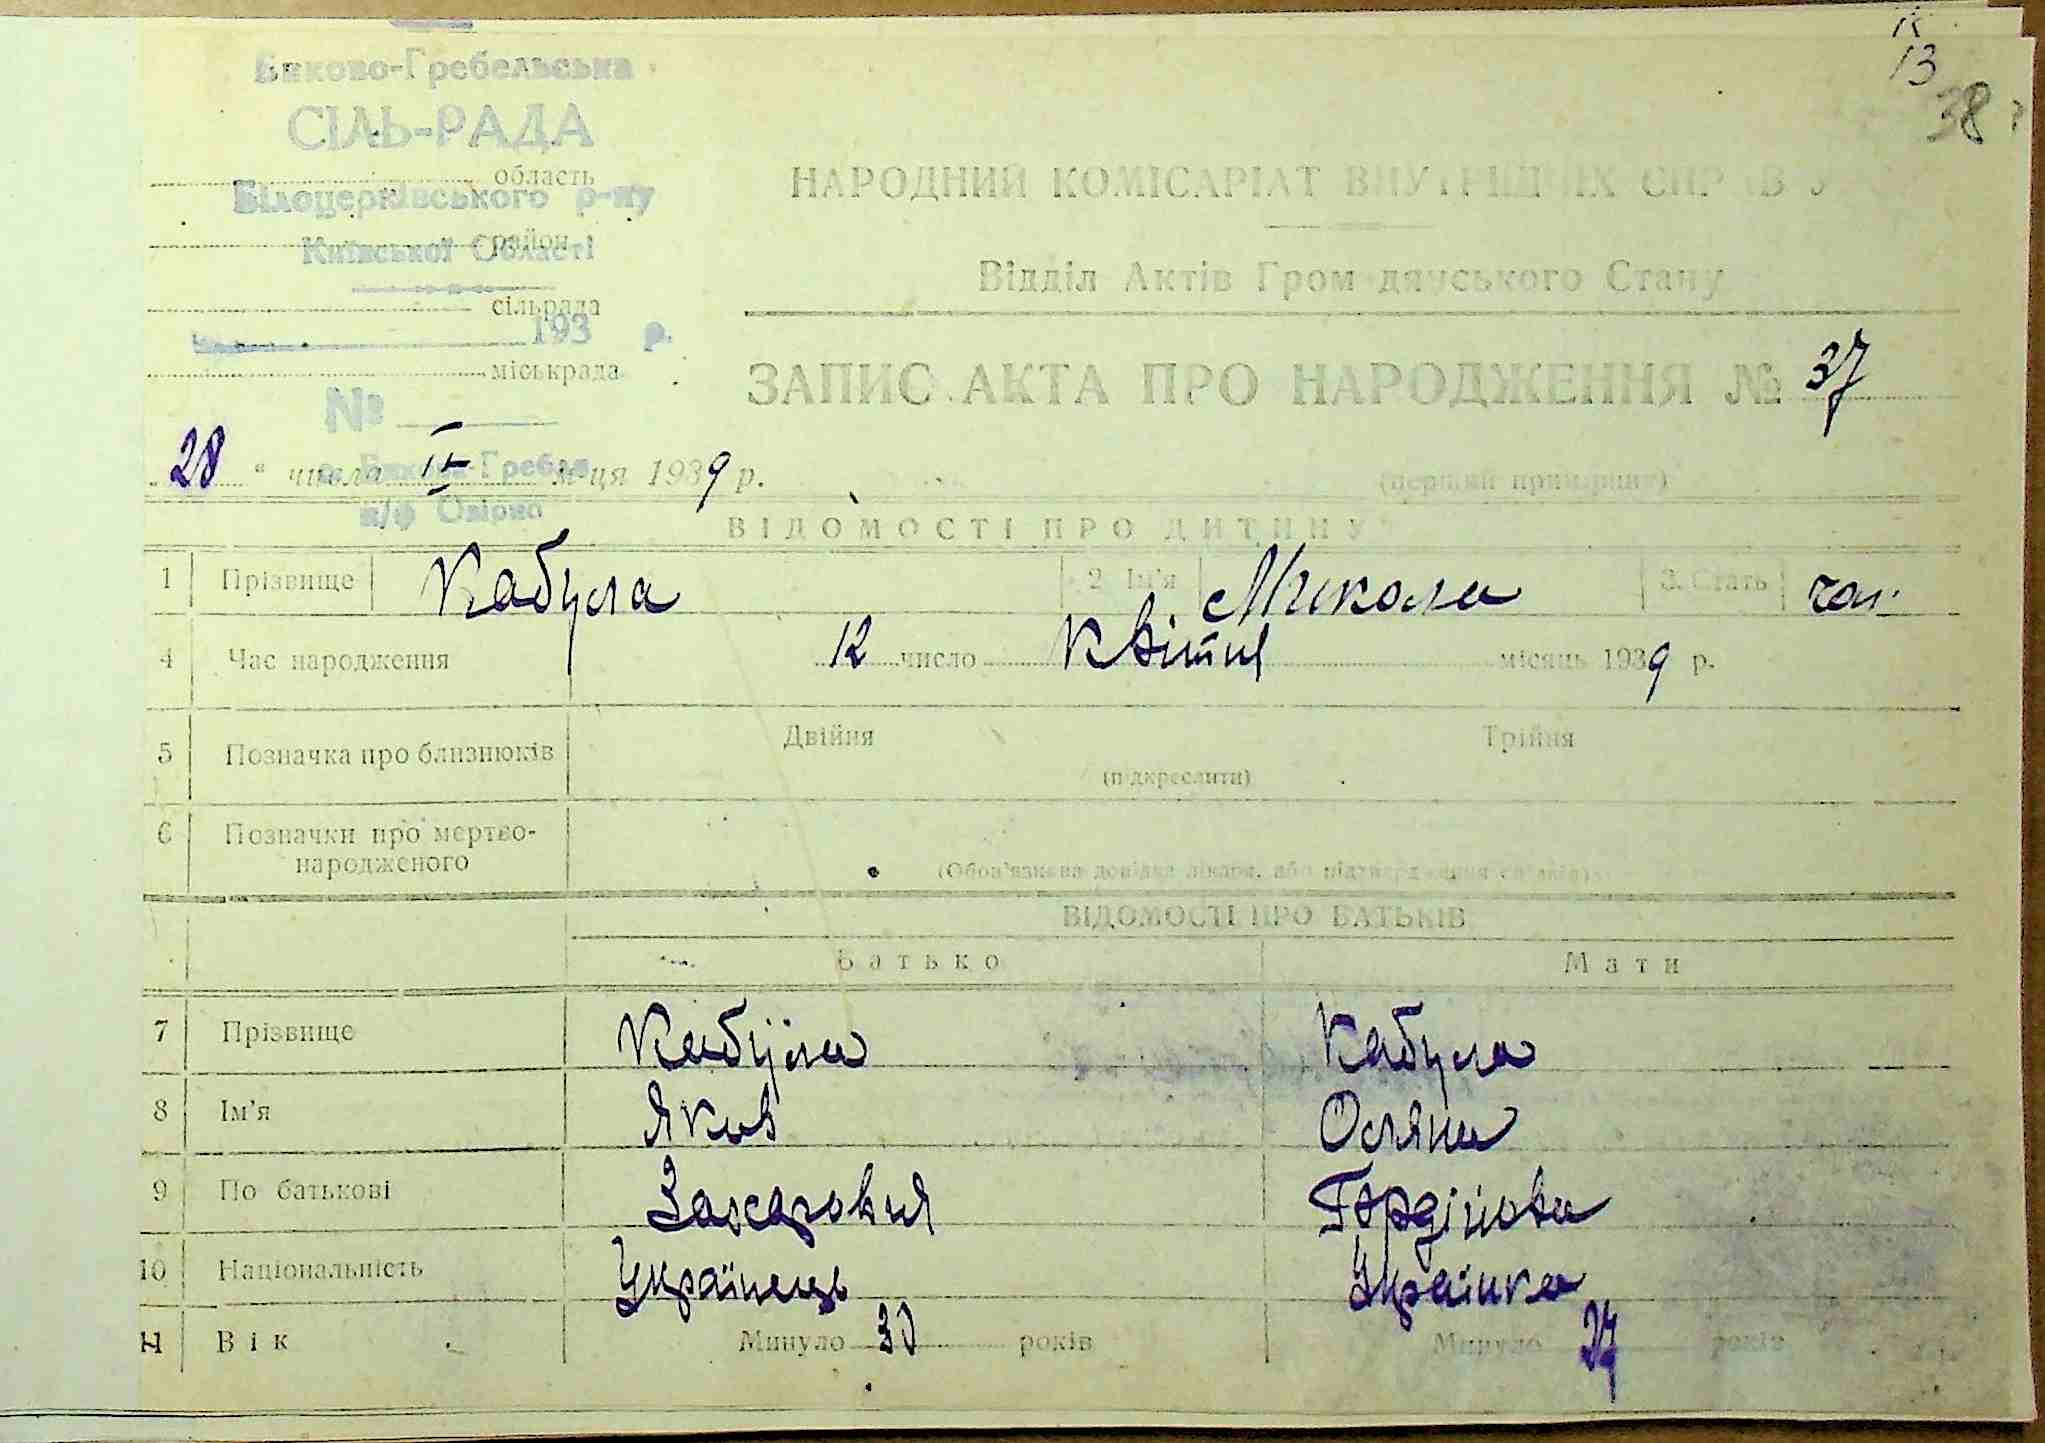 К
13
38
Биково-Гребельська
СІЛЬ-РАДА
область
Білоцерківського р-ну
район
Київської Області
сільрада
193 р.
міськрада
№
НАРОДНИЙ КОМІСАРІАТ ВНУТРІШНІХ СПРАВ У
Відділ Актів Громадянського Стану
ЗАПИС АКТА ПРО НАРОДЖЕННЯ № 37
28 " числа IV м-ця 1939 р.
(перший примірник)
с. Бикова-Гребля
п/ф Озірно
ВІДОМОСТІ ПРО ДИТИНУ
1 Прізвище Кабула 2 Ім'я Микола 3. Стать чол.
4 Час народження 12 число Квітня місяць 1939 р.
5 Позначка про близнюків Двійня Трійня
(підкреслити)
6 Позначки про мертво-
народженого
(Обов'язкова довідка лікаря, або підтвердження свідків)
ВІДОМОСТІ ПРО БАТЬКІВ
Батько Мати
7 Прізвище Кабула Кабула
8 Ім'я Яків Оляна
9 По батькові Захарович Гордіївна
10 Національність Українець Українка
11 Вік Минуло років Минуло 27 років